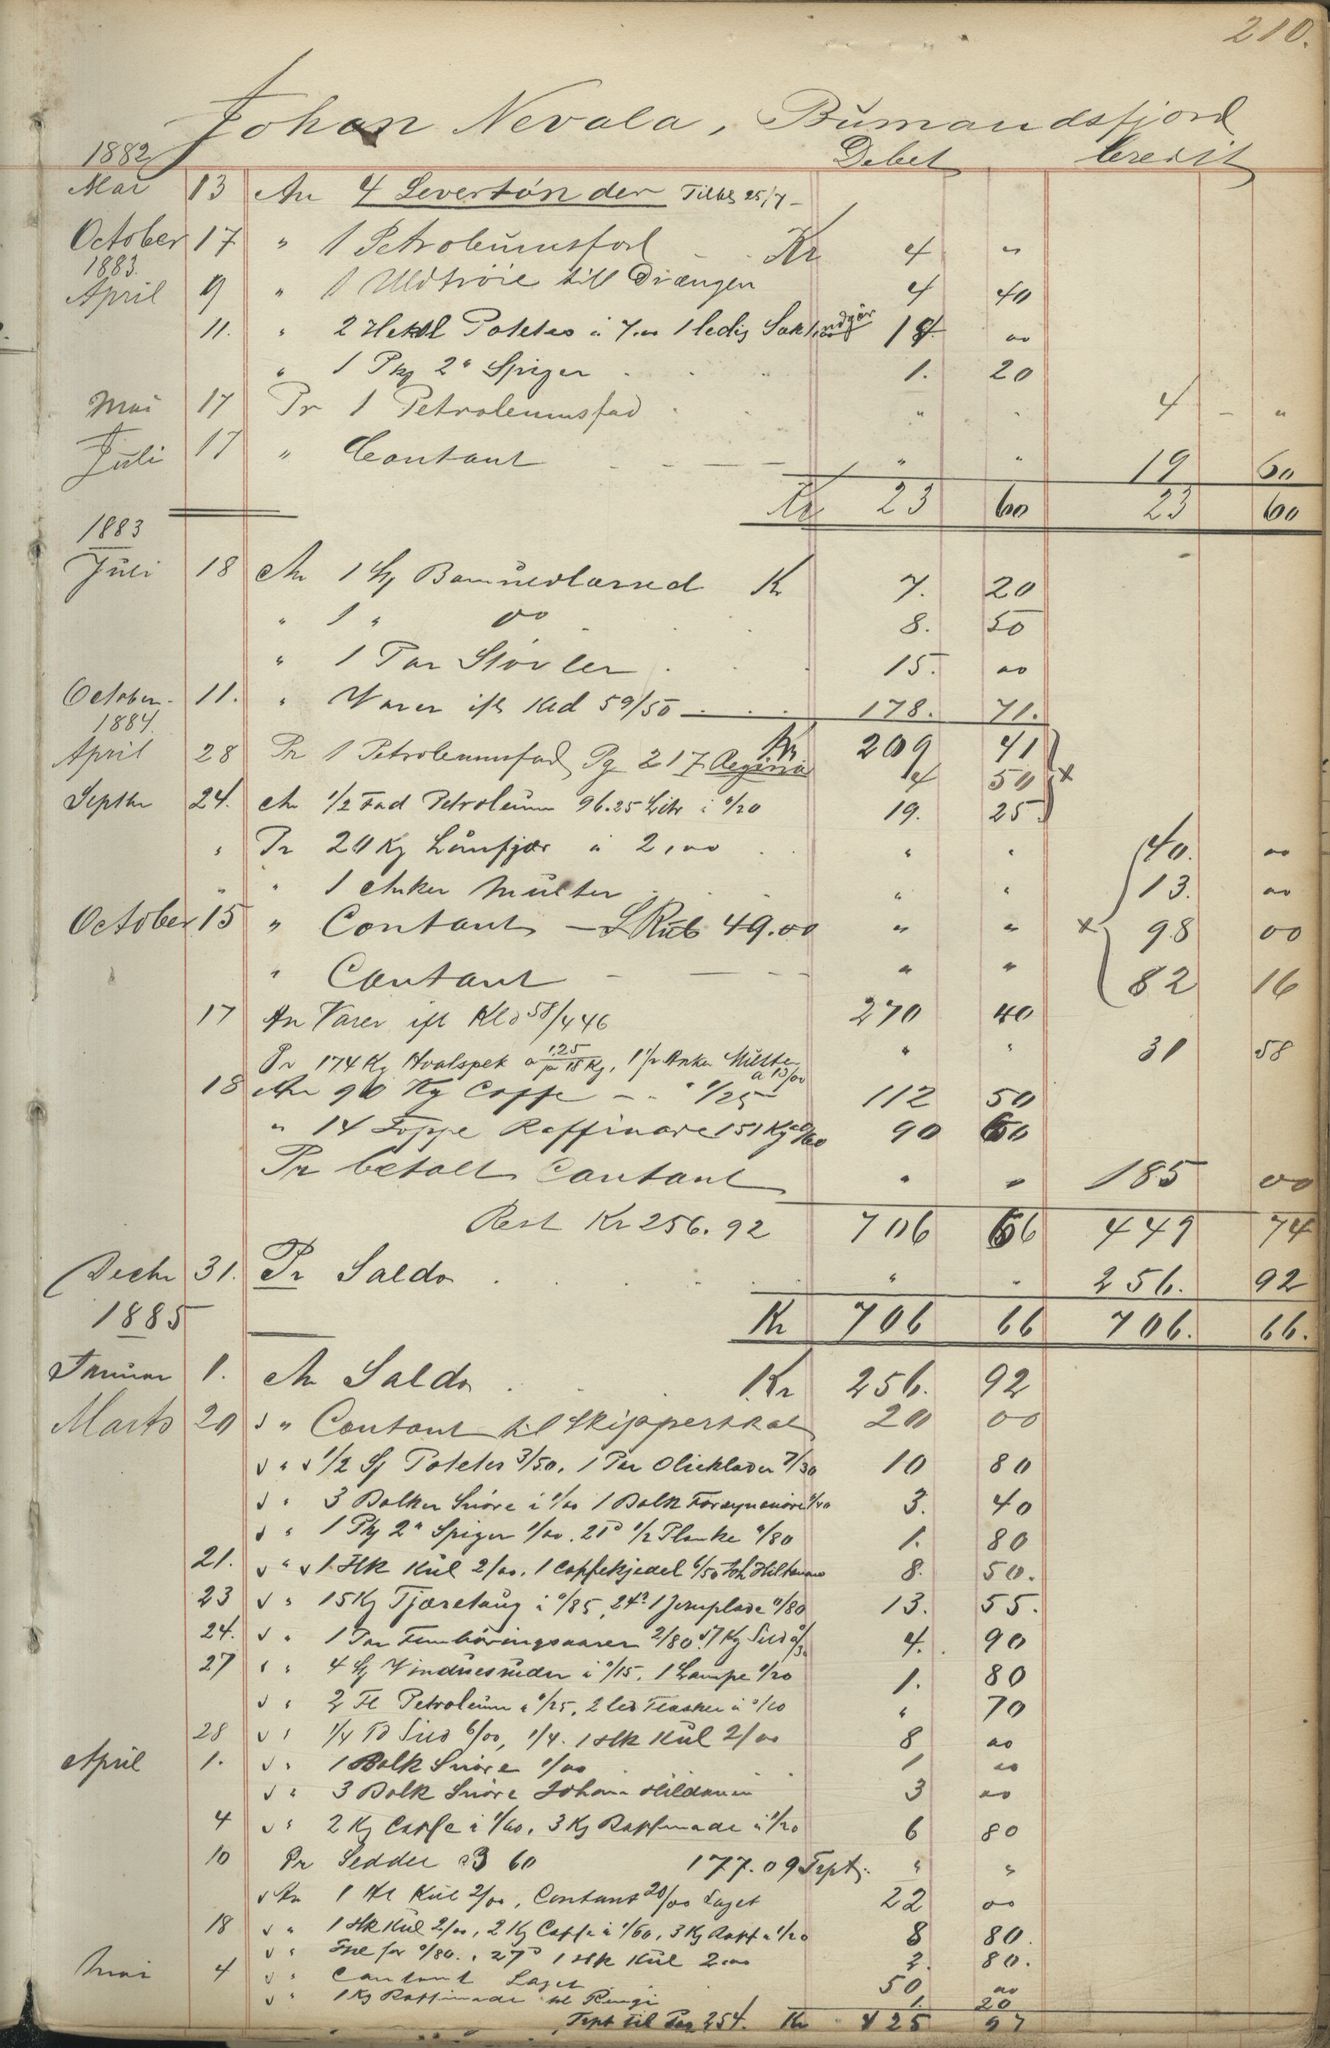 210.
Johan Nevala, Bumandsfjord
1882 Debet Credit
Mai 13 An 4 Levertönder Tilbl 25/7
October 17 " 1 Petroleumsfad Kr 4 "
1883.
April 9 " 1 Uldtröie till Drængen 4 40
11. " 2 Hektl Potetes a 7.00 1 ledig Sæk 14 00
" 1 Pkg 2" Spiger 1. 20
Mai 17 Pr 1 Petroleumsfad " " 4 "
Juli 17 " Contant " " 19 60
Kr 23 60 23 60
1883
Juli 18 An 1 Bomuldlærred Kr 7. 20
" 1 " do 8. 50
" 1 Par Stövler 15. 00
October 11. " Varer ifl Kld 59/50 178. 71.
1884. Kr 209 41
April 28 Pr 1 Petroleumsfad Pg 217 4 50 x
Septbr 24. An 1/2 Fad Petroleum 96.25 Litr a 0/20 19. 25
" Pr 20 Kg a 2,00 " " 40. 00
" " 1 Anker Multer " " 13. 00
October 15 " Contant – S Rub 49.00 " " x 98 00
" Contant " " 82 16
17 An Varer ifl Kld 58/446 270 40
Pr 174 Kg Hvalspek a 1.25 pr 18 Kg, 1 1/2 Anker Multer a 13/00 " " 31 58
18 An 90 Kg Caffe " 1/25 112 50
" 14 Toppe Raffinade 151 Kg a 0/60 90 60
Pr betalt Contant " " 185 00
Rest Kr 256.92 706 66 449 74
Decbr 31. Pr Saldo " " 256. 92
1885 Kr 706 66 706. 66.
Januar 1. An Saldo Kr 256. 92
Marts 20 " Contant til Skipperskat 20 00
" 1/2 Potetes 3/50, 1 Par Olieklæder 7/30 10 80
" 3 Bolker Snöre a 1/00 1 Bolk Forsynsnöre 0/40 3. 40
" 1 Pkg 2" Spiger 1/00. 21d 1/2 Planke 0/80 1. 80
21. " 1 Hk Kul 2/00, 1 Caffekjedel 6/50 Joh Hiltunen 8. 50.
23 " 15 Kg Tjæretaug a 0/85, 24d 1 Jernplade 0/80 13. 55.
24. " 1 Par Fembøringsaarer 2/80. 7 Kg Sild 4. 90
27 " 4 Vinduesruder a 0/15, 1 Lampe 1/20 1. 80
" 2 Fl Petroleum a 0/25, 2 led Flasker a 0/10 " 70
28 " 1/4 Td Sild 6/00, 1/4. 1 Hk Kul 2/00 8 00
April 1. " 1 Bolk Snöre 1/00 1 00
" 3 Bolk Snöre Johan 3 00
4 " 2 Kg Caffe a 1/60, 3 Kg Raffinade a 1/20 6 80
10 Pr Seddel 360 177.09 Trpt. " "
An 1 Hl Kul 2/00, Contant 20/00 Laget 22 00
18 " 1 Hk Kul 2/00, 2 Kg Caffe a 1/60, 3 Kg Raff a 1/20 8 80.
" for 0/80. 27d 1 Hk Kul 2.00 2. 80.
Mai 4 " Contant Laget 50 00
" 1 Kg Raffinade til 1. 20
Trpt til Pag 254. Kr 425 97